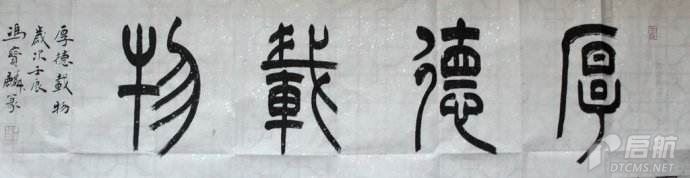 厚德載物
厚德載物
歲次壬辰
馮寶麟篆
启航
DTCMS.NET